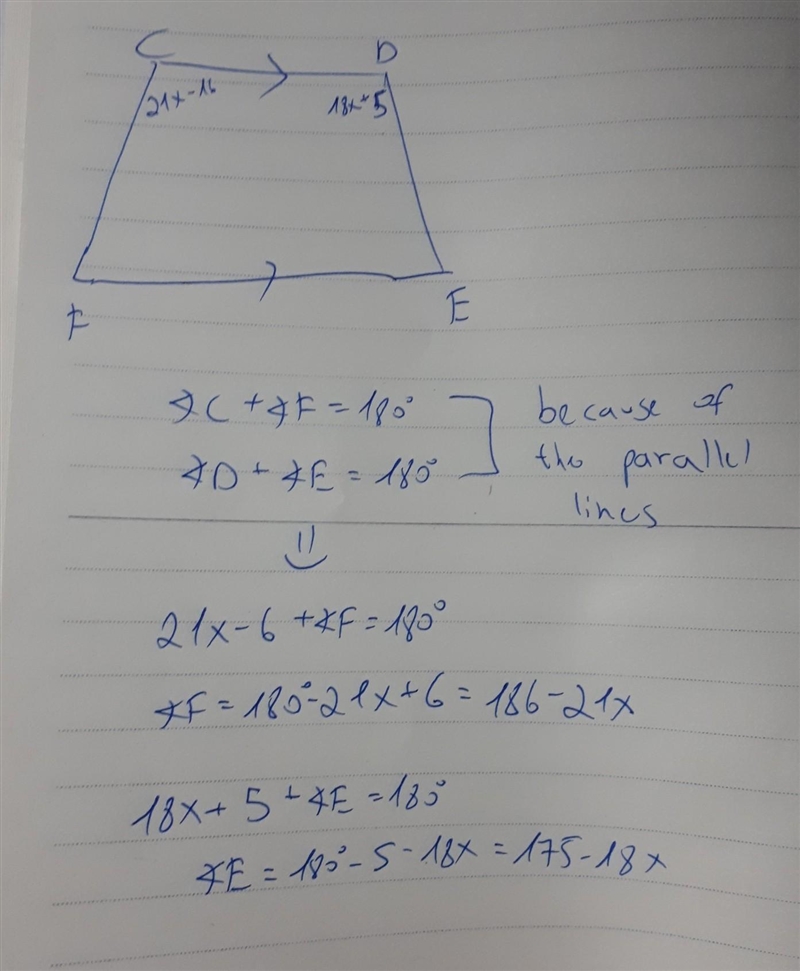 C D
21x-16 18x+5
F E
∢C + ∢F = 180° because of
∢D + ∢E = 180° the parallel
lines
21x-6 + ∢F = 180°
∢F = 180°-21x+6 = 186-21x
18x+5 + ∢E = 180°
∢E = 180°-5-18x = 175-18x